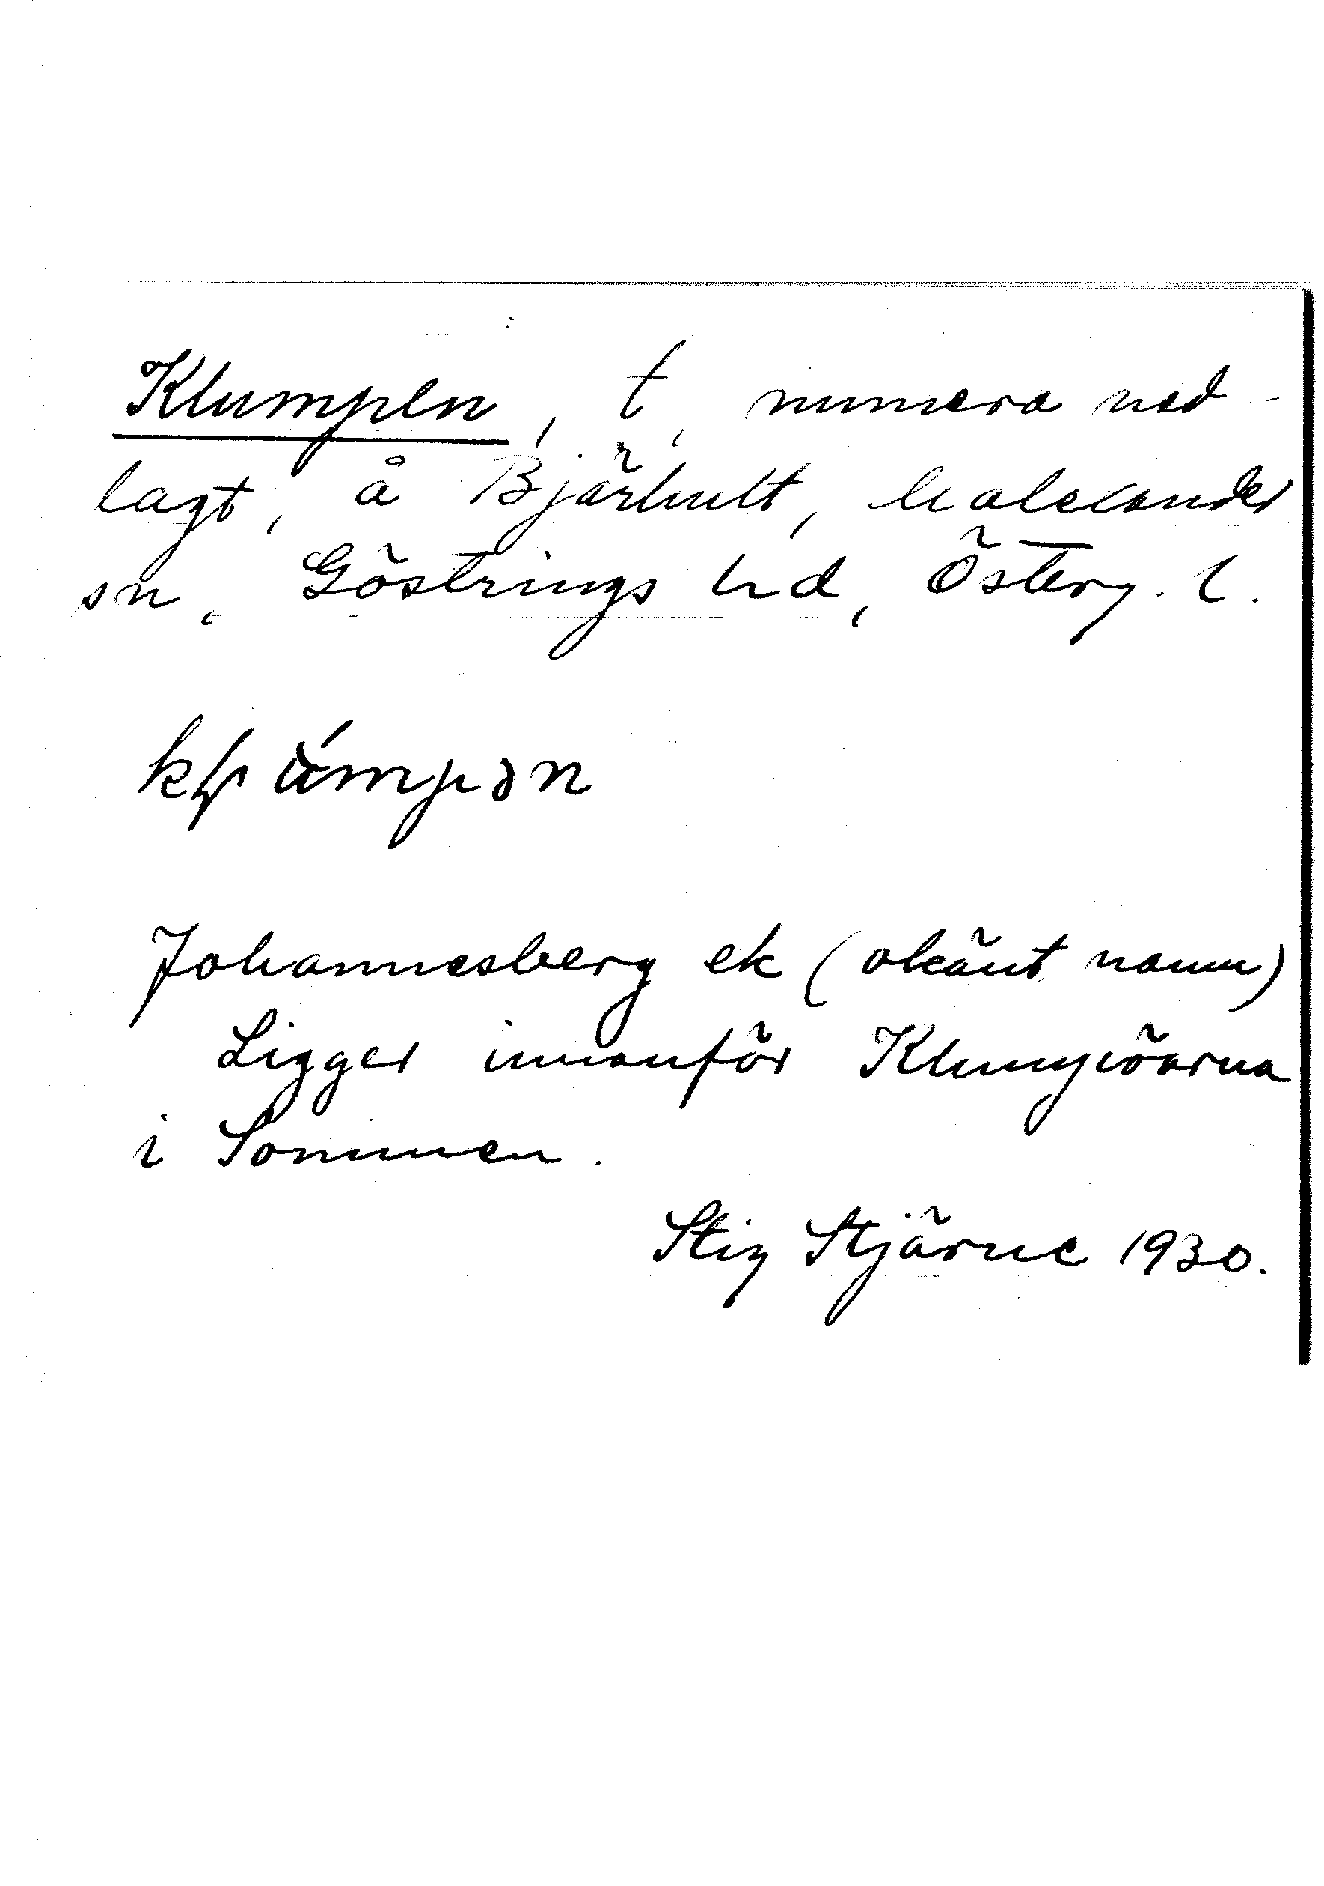 Klumpen, t, numera ned-
lagt, å Bjärhult, Malexander
sn, Göstrings hd, Österg. l.
Johannesberg ek (okänt namn)
Ligger innanför Klumpöarna
i Sommen.
Stig Stjärne 1930.